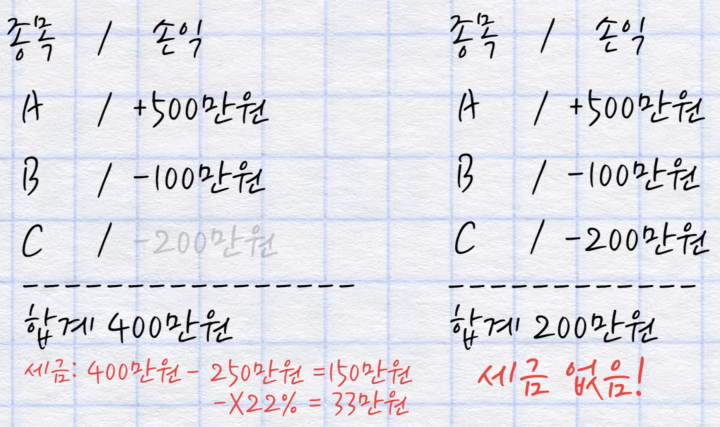 종목 / 손익
A / +500만원
B / -100만원
C / -200만원
합계 400만원
세금: 400만원 - 250만원 =150만원
-X22% = 33만원
종목 / 손익
A / +500만원
B / -100만원
C / -200만원
합계 200만원
세금 없음!